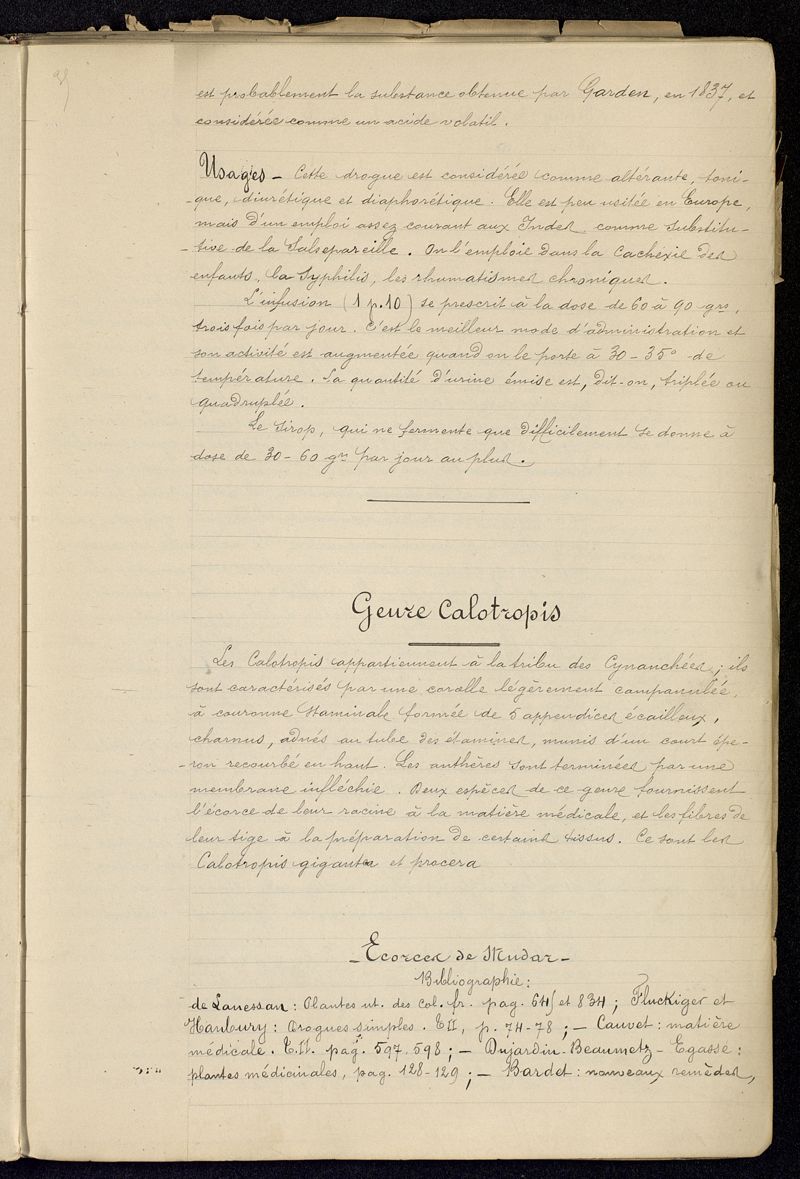 est probablement la substance obtenue par Garden, en 1837, et
considérée comme un acide volatil.
Usages — Cette drogue est considérée comme altérante, toni-
-que, diurétique et diaphorétique. Elle est peu usitée en Europe,
mais d'un emploi assez courant aux Indes, comme substitu-
-tive de la Salsepareille. On l'emploie dans la cachexie des
enfants, la syphilis, les rhumatismes chroniques.
L'infusion (1 p. 10) se prescrit à la dose de 60 à 90 grs,
trois fois par jour. C'est le meilleur mode d'administration et
son activité est augmentée quand on le porte à 30-35° de
température. La quantité d'urine émise est, dit-on, triplée ou
quadruplée.
Le sirop, qui ne fermente que difficilement se donne à
dose de 30-60 grs par jour au plus.
Genre Calotropis
Les Calotropis appartiennent à la tribu des Cynanchées; ils
sont caractérisés par une corolle légèrement campanulée,
à couronne staminale formée de 5 appendices écailleux,
charnus, adnés au tube des étamines, munis d'un court épe-
-ron recourbé en haut. Les anthères sont terminées par une
membrane infléchie. Deux espèces de ce genre fournissent
l'écorce de leur racine à la matière médicale, et les fibres de
leur tige à la préparation de certains tissus. Ce sont les
Calotropis gigantea et procera
— Ecorces de Mudar —
Bibliographie:
de Lanessan: Plantes ut. des col. fr. pag. 64 et 834; Fluckiger et
Hanbury: Drogues simples. T.II, p. 74-78; — Cauvet: matière
médicale. T.II. pag. 597-598; — Dujardin-Beaumetz-Egasse:
plantes médicinales, pag. 128-129; — Bardet: nouveaux remèdes,